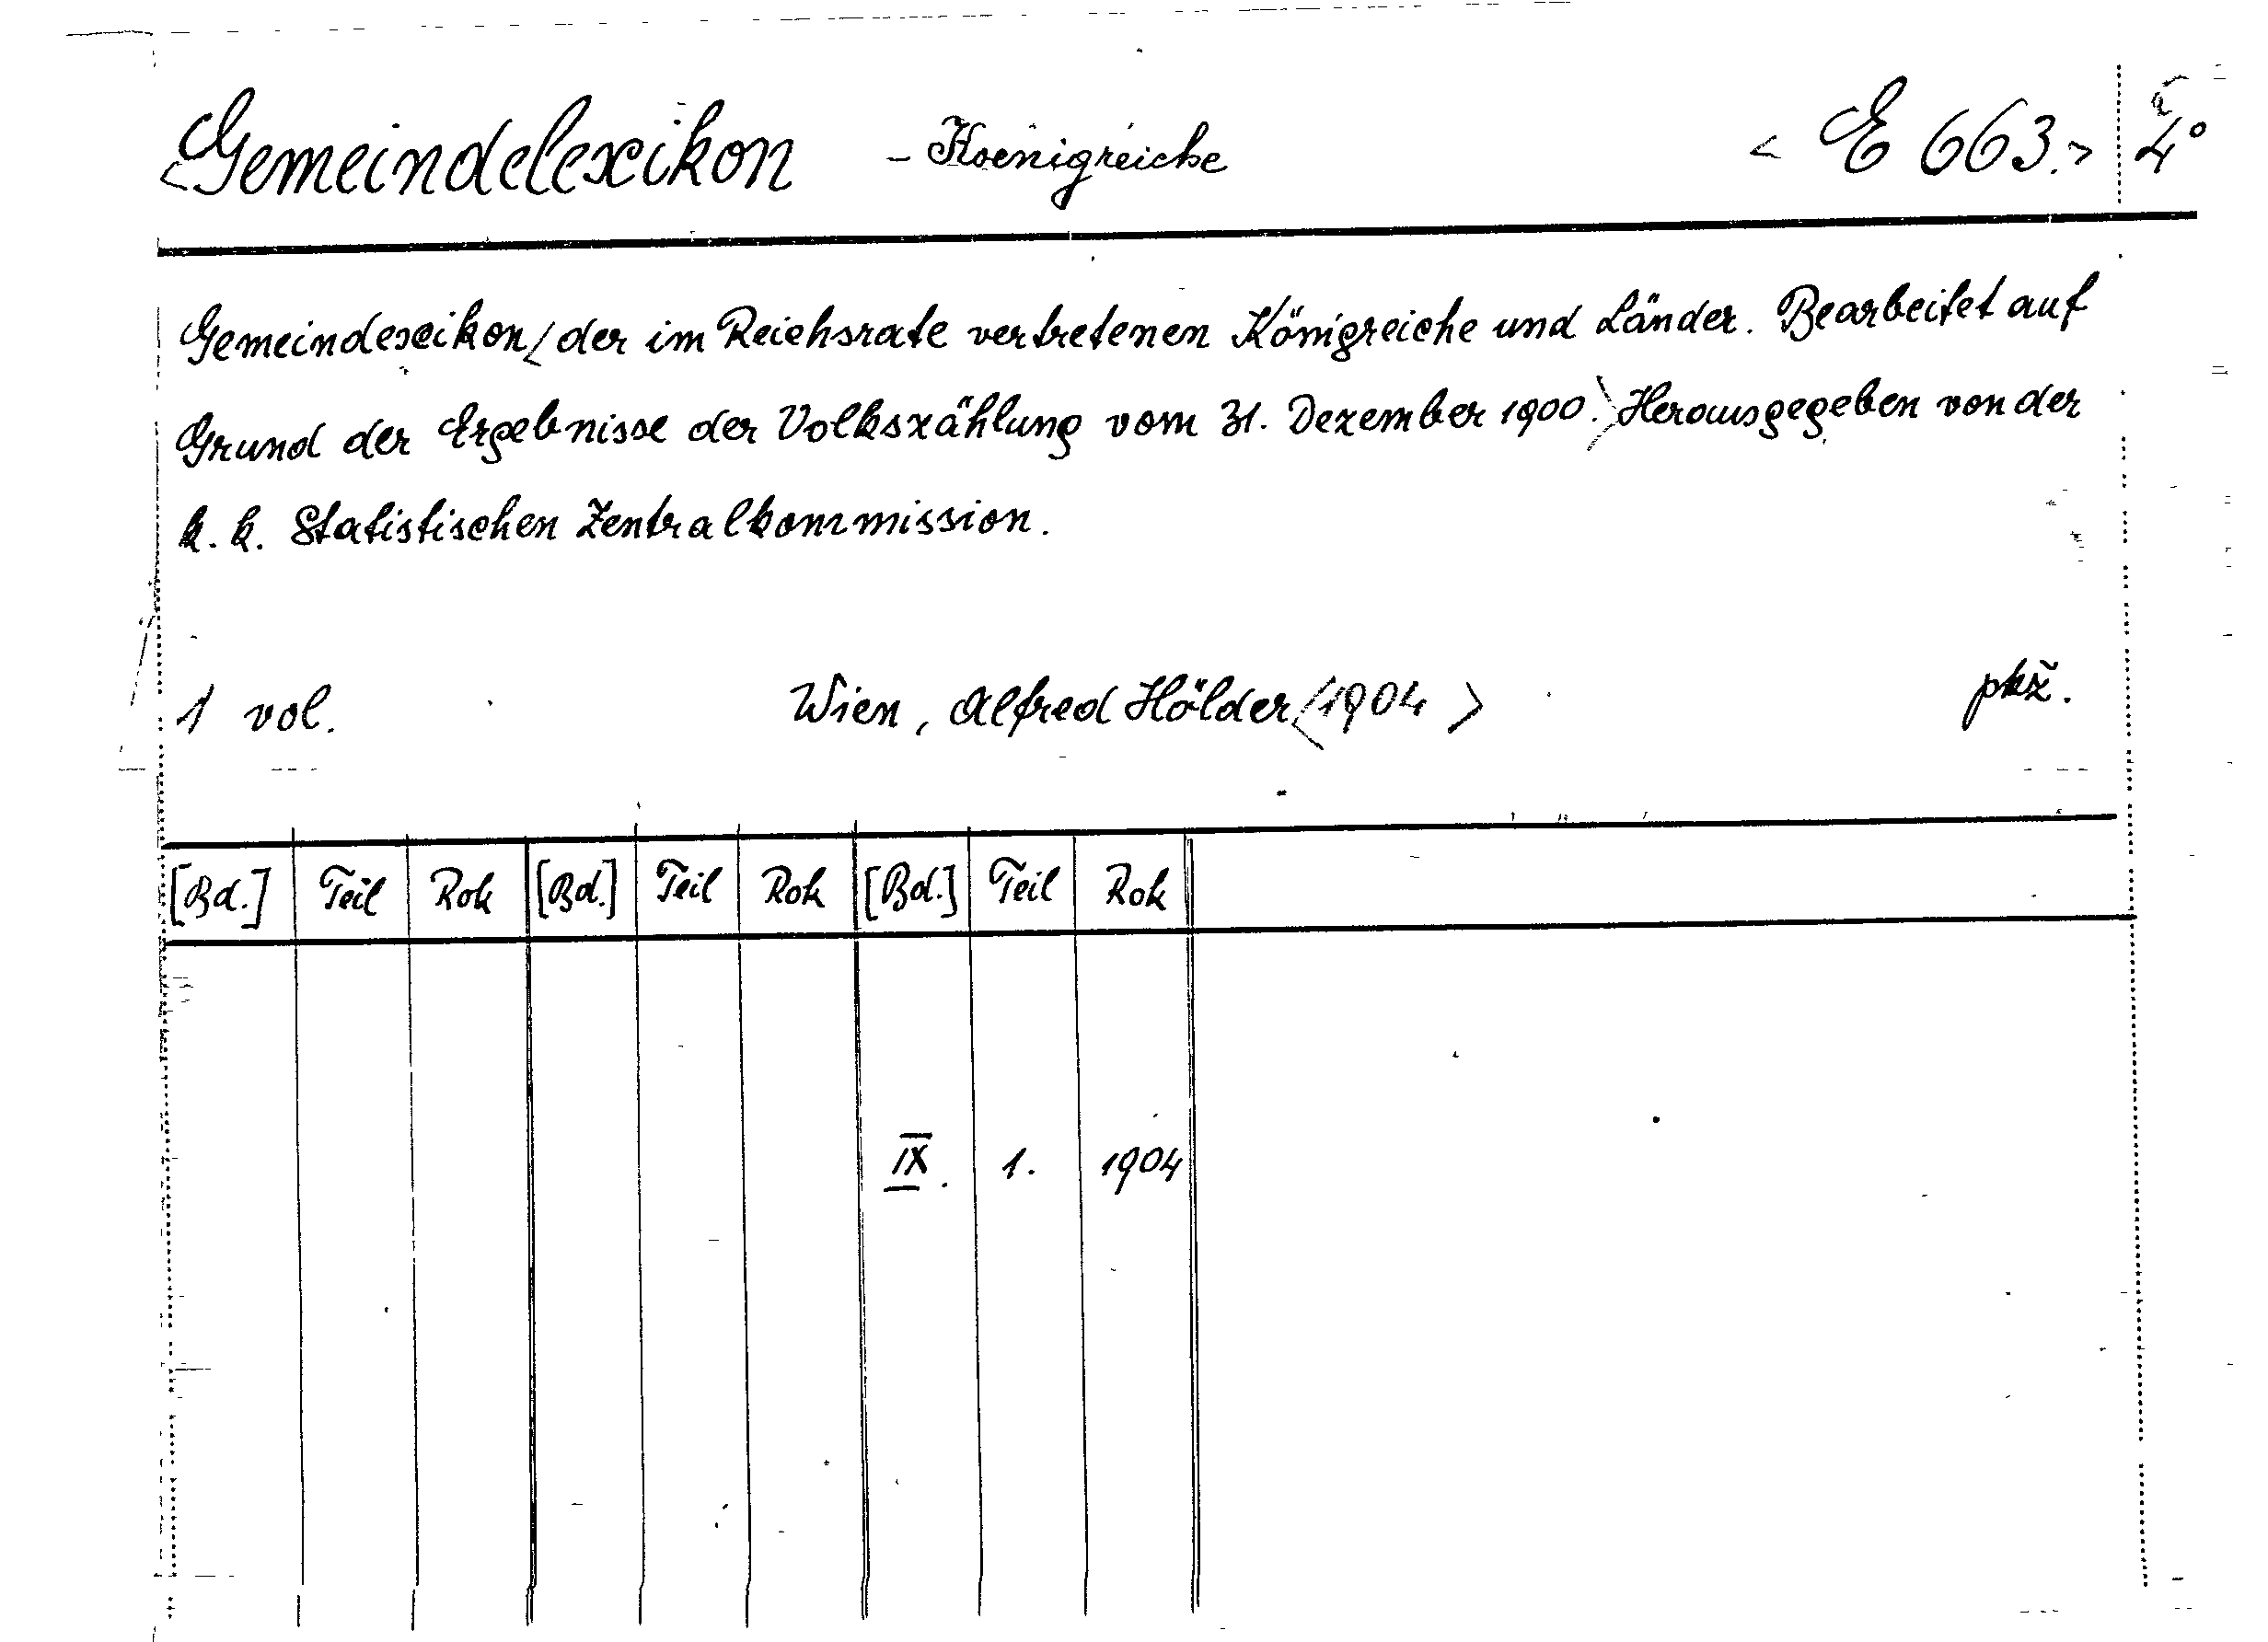 <Gemeindelexikon - Koenigreiche < E 663.> 4°
Gemeindexikon/ der im Reichsrate vertretenen Königreiche und Länder. Bearbeitet auf
Grund der Ergebnisse der Volkszählung vom 31. Dezember 1900. Herausgegeben von der
k. k. Statistischen Zentralkommission.
1 vol. Wien, Alfred Hölder <1904 > pkž.
[Bd.] Teil Rok [Bd.] Teil Rok [Bd.] Teil Rok
IX. 1. 1904